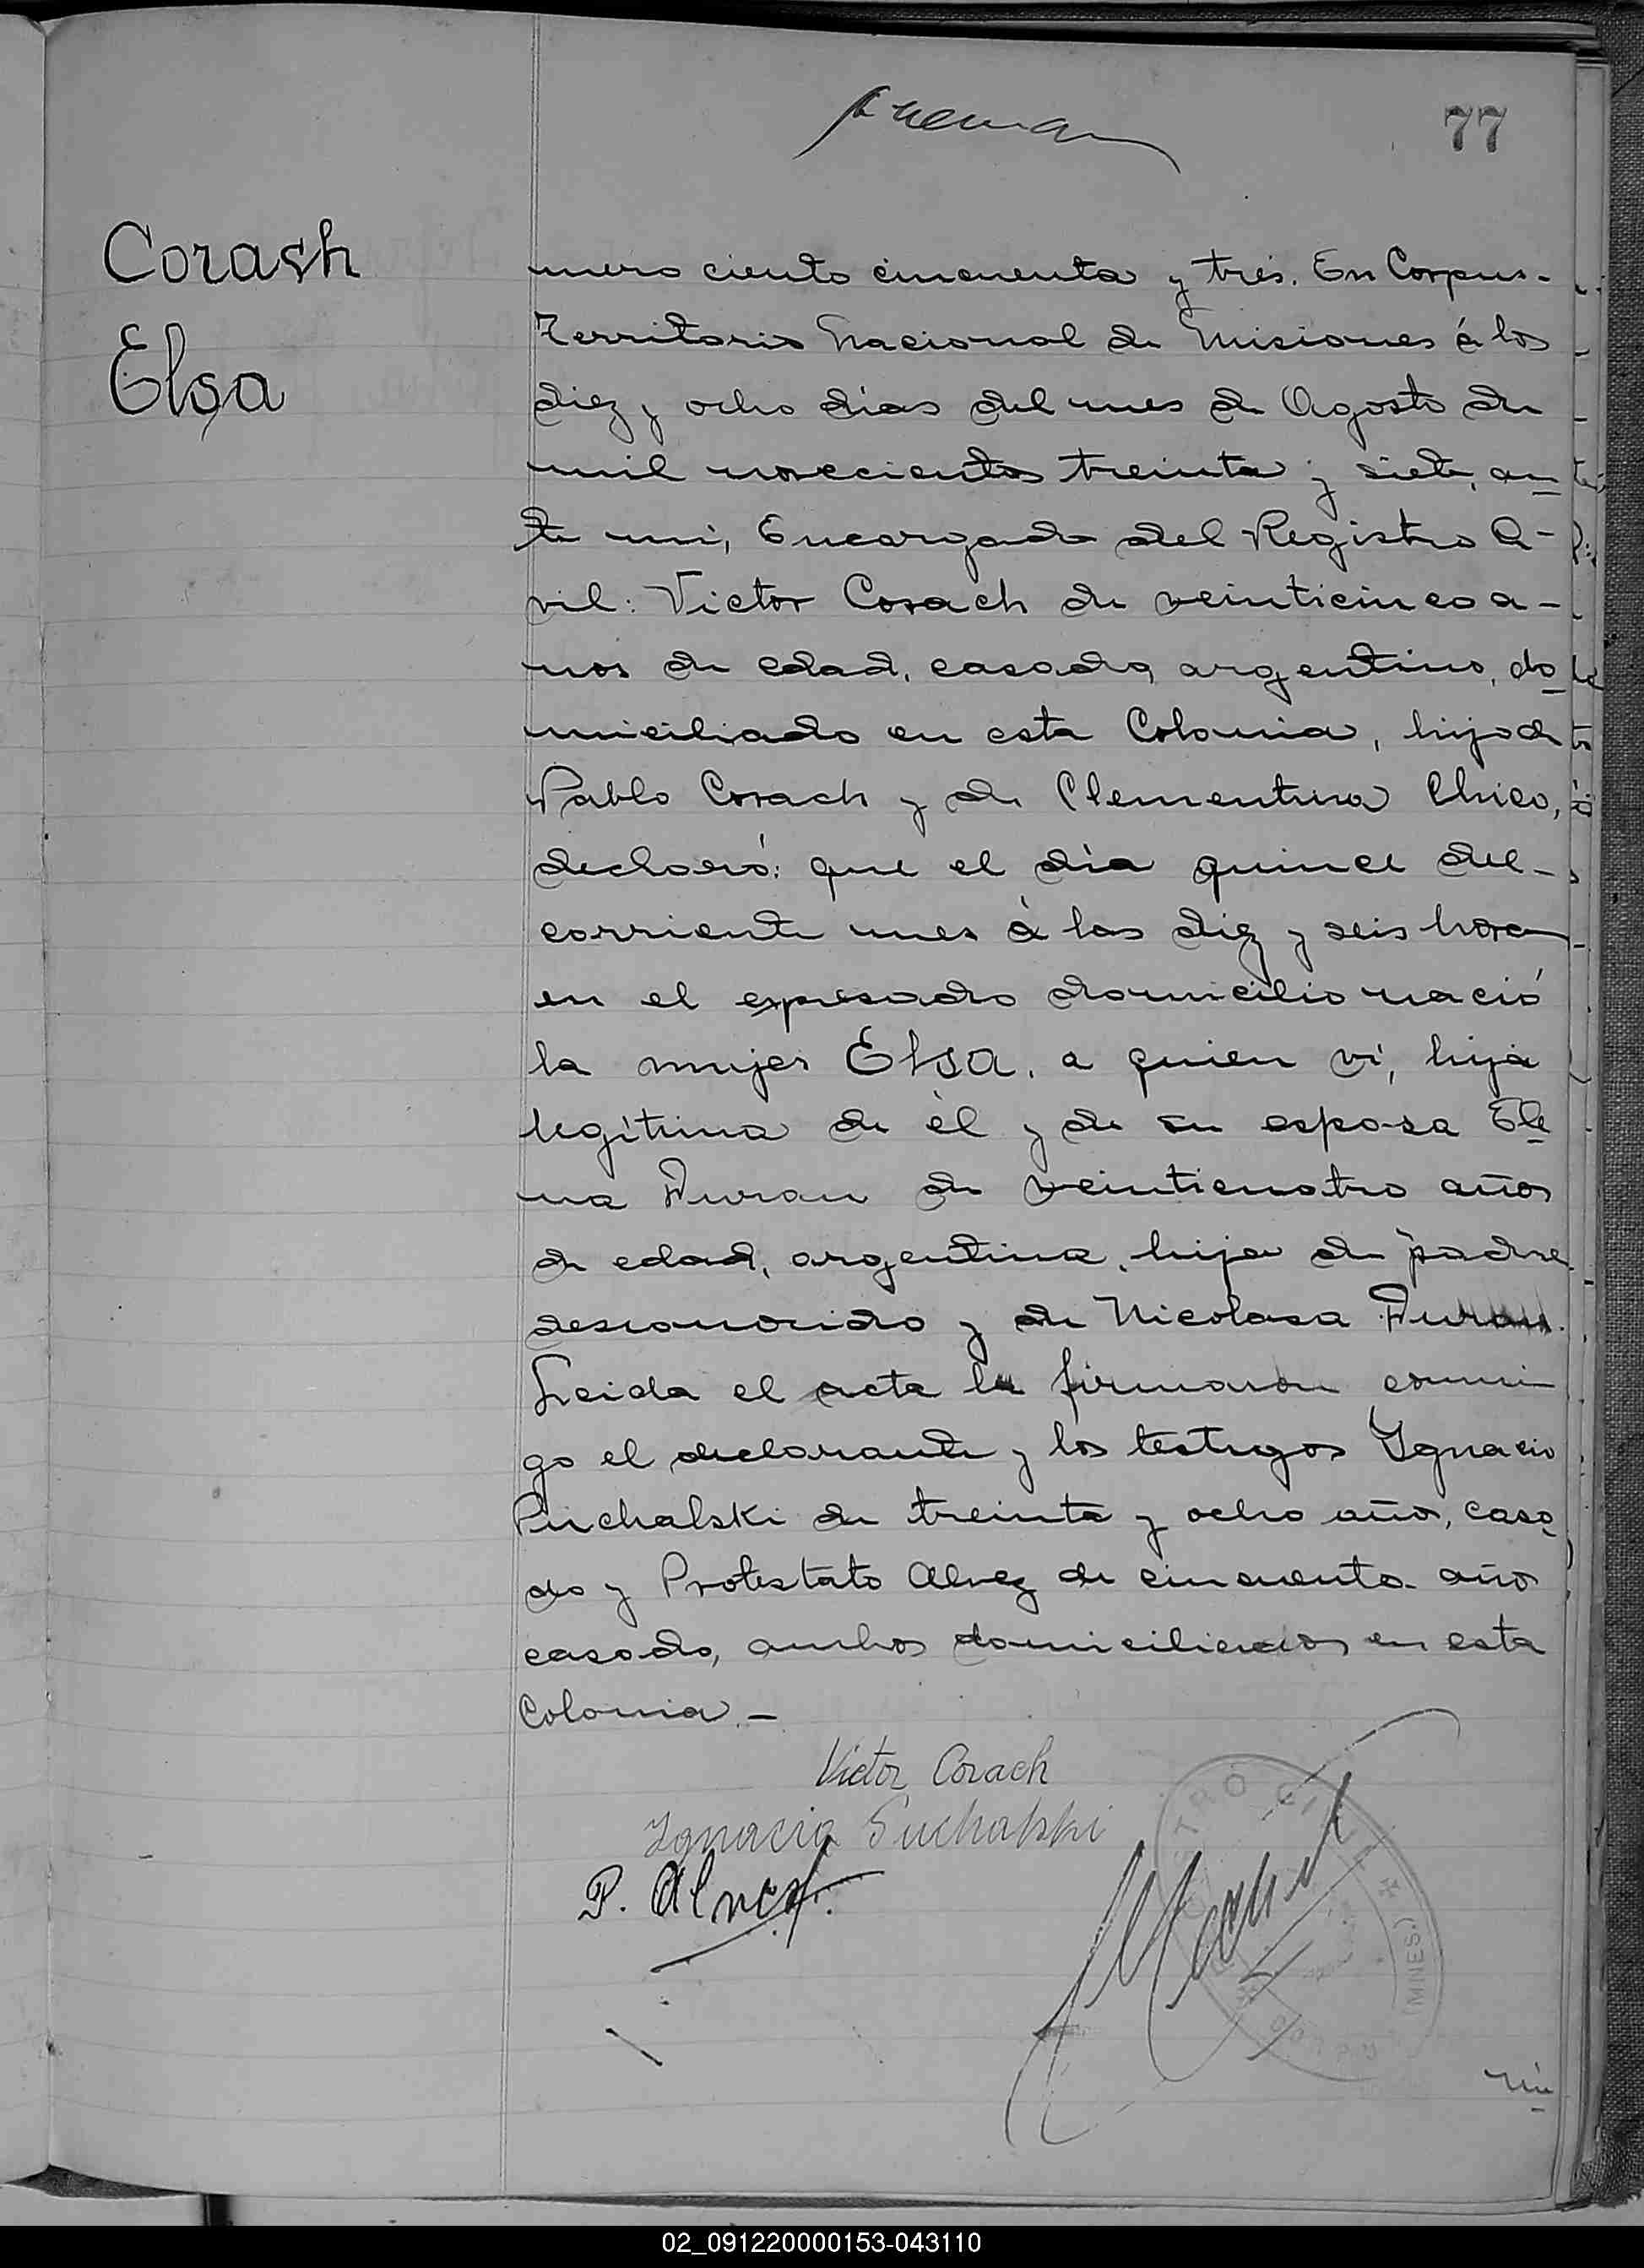 77
Corash
Elsa
mero ciento cincuenta y tres. En Corpus-
Territorio Nacional de Misiones á los
diez y ocho dias del mes de Agosto de
mil novecientos treinta y siete, an
te mi, Encargado del Registro Ci-
vil: Victor Corach de veinticinco a-
nos de edad, casado, argentino, do
miciliado en esta Colonia, hijo de
Pablo Corach y de Clementina Chico,
declaró: que el dia quince del-
corriente mes á las diez y seis horas
en el expresado domicilio nació
la mujer Elsa, a quien vi, hija
legítima de él y de su esposa Ele
na Duran de veinticuatro años
de edad, argentina, hija de padre
desconocido y de Nicolasa Duran.
Leida el acta la firmaron conmi
go el declarante y los testigos Ygnacio
Puchalski de treinta y ocho año, casa
do y Protestato Alvez de cincuenta año
casado, ambos domiciliados en esta
Colonia.-
Victor Corach
Ygnacio Puchalski
P. Alvez.
REGISTRO CIVIL
(MNES.)
Nú
02_091220000153-043110